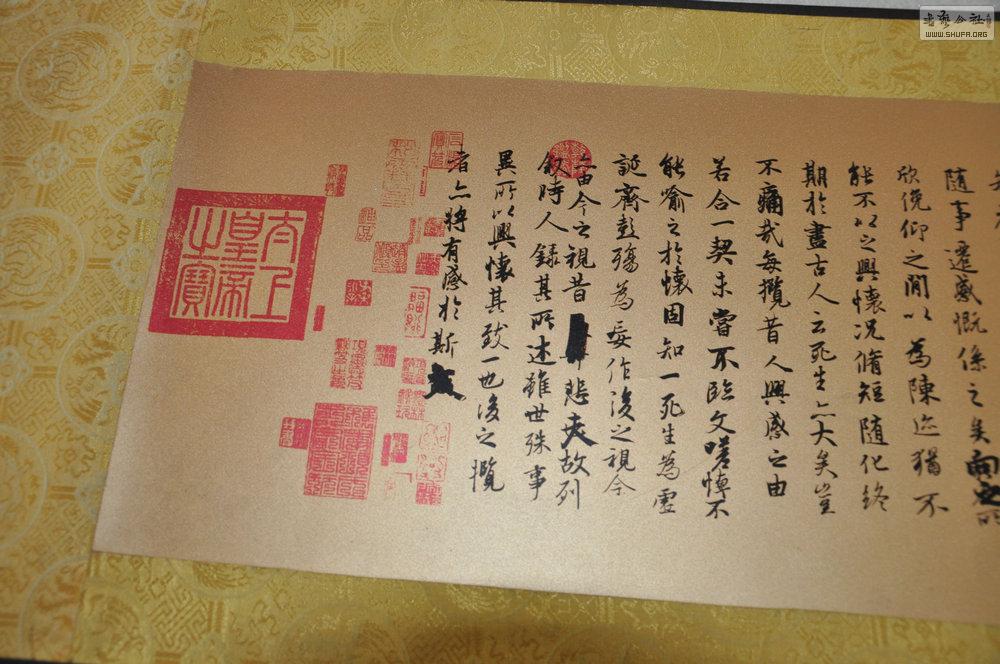 隨事遷感慨係之矣向之所
欣俛仰之閒以為陳迹猶不
能不以之興懷況脩短隨化終
期於盡古人云死生亦大矣豈
不痛哉每攬昔人興感之由
若合一契未嘗不臨文嗟悼不
能喻之於懷固知一死生為虛
誕齊彭殤為妄作後之視今
亦由今之視昔悲夫故列
敘時人錄其所述雖世殊事
異所以興懷其致一也後之攬
者亦將有感於斯文
太上
皇帝
之寶
WWW.SHUFA.ORG